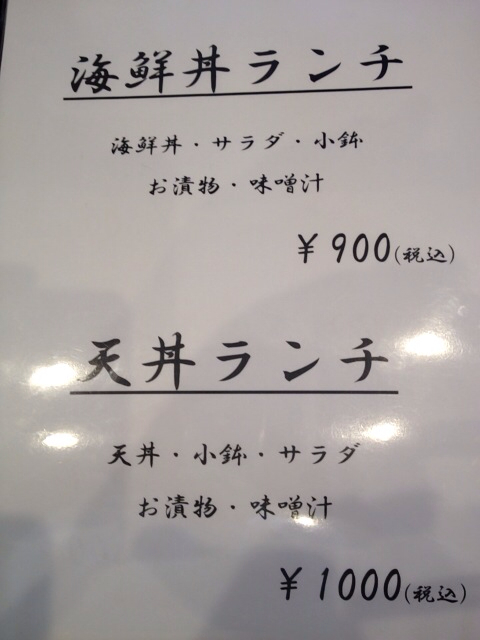 海鮮丼ランチ
海鮮丼・サラダ・小鉢
お漬物・味噌汁
¥900(税込)
天丼ランチ
天丼・小鉢・サラダ
お漬物・味噌汁
¥1000(税込)